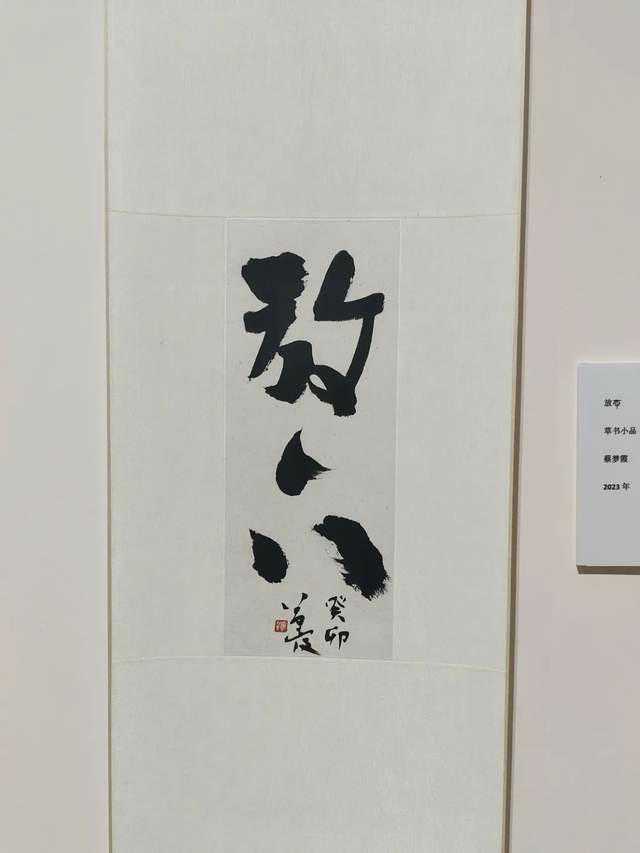 放下
癸卯
放
草书小品
蔡梦霞
2023 年